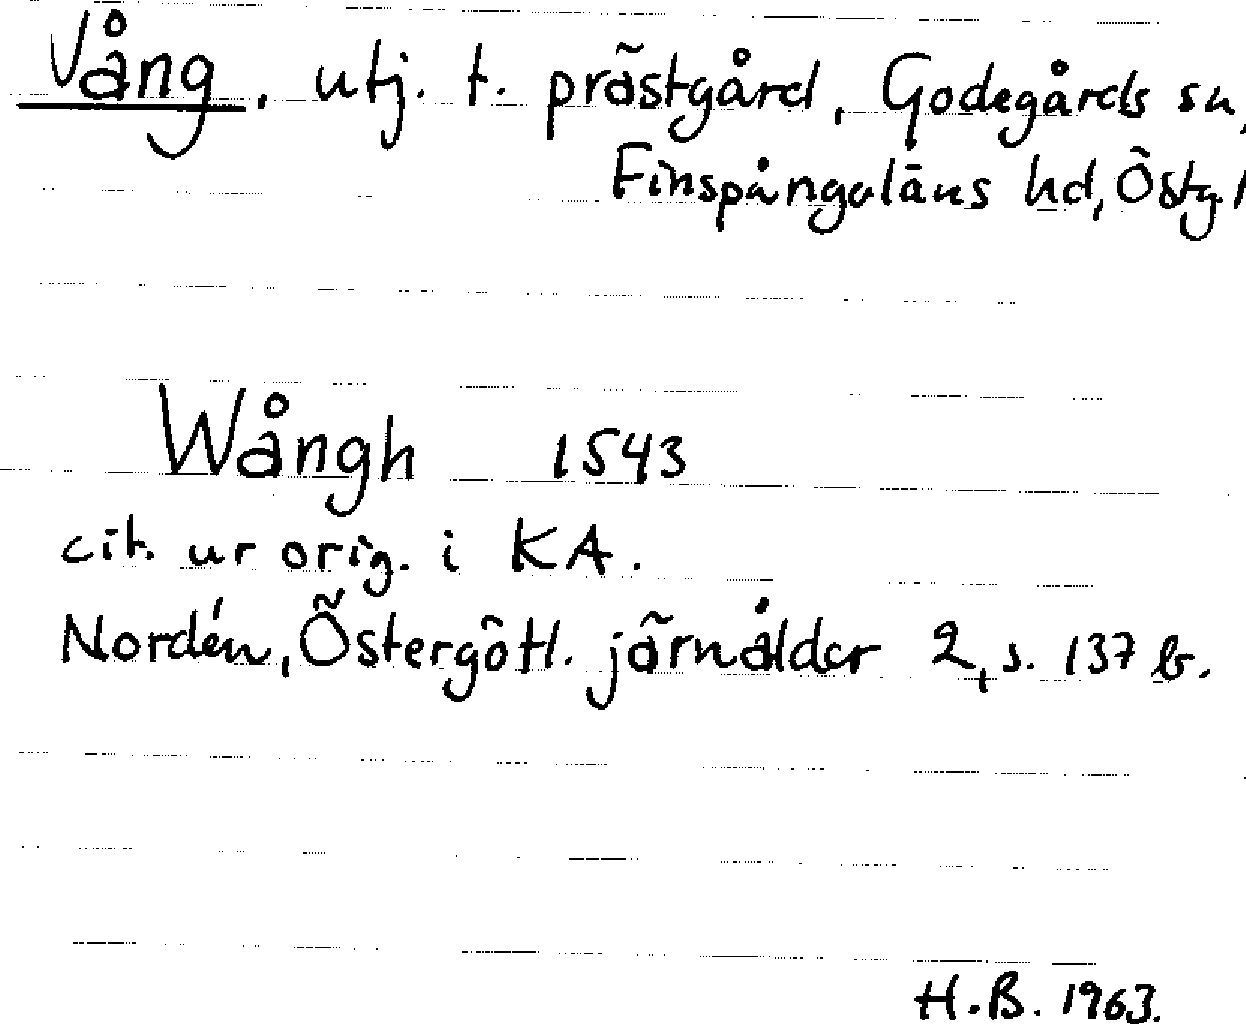 Vång, utj. t. prästgård, Godegårds sn,
Finspångaläns hd, Östg
Wångh 1543
cit. ur orig. i KA.
Nordén, Östergötl. järnålder 2, s. 137 b.
H.B. 1963.